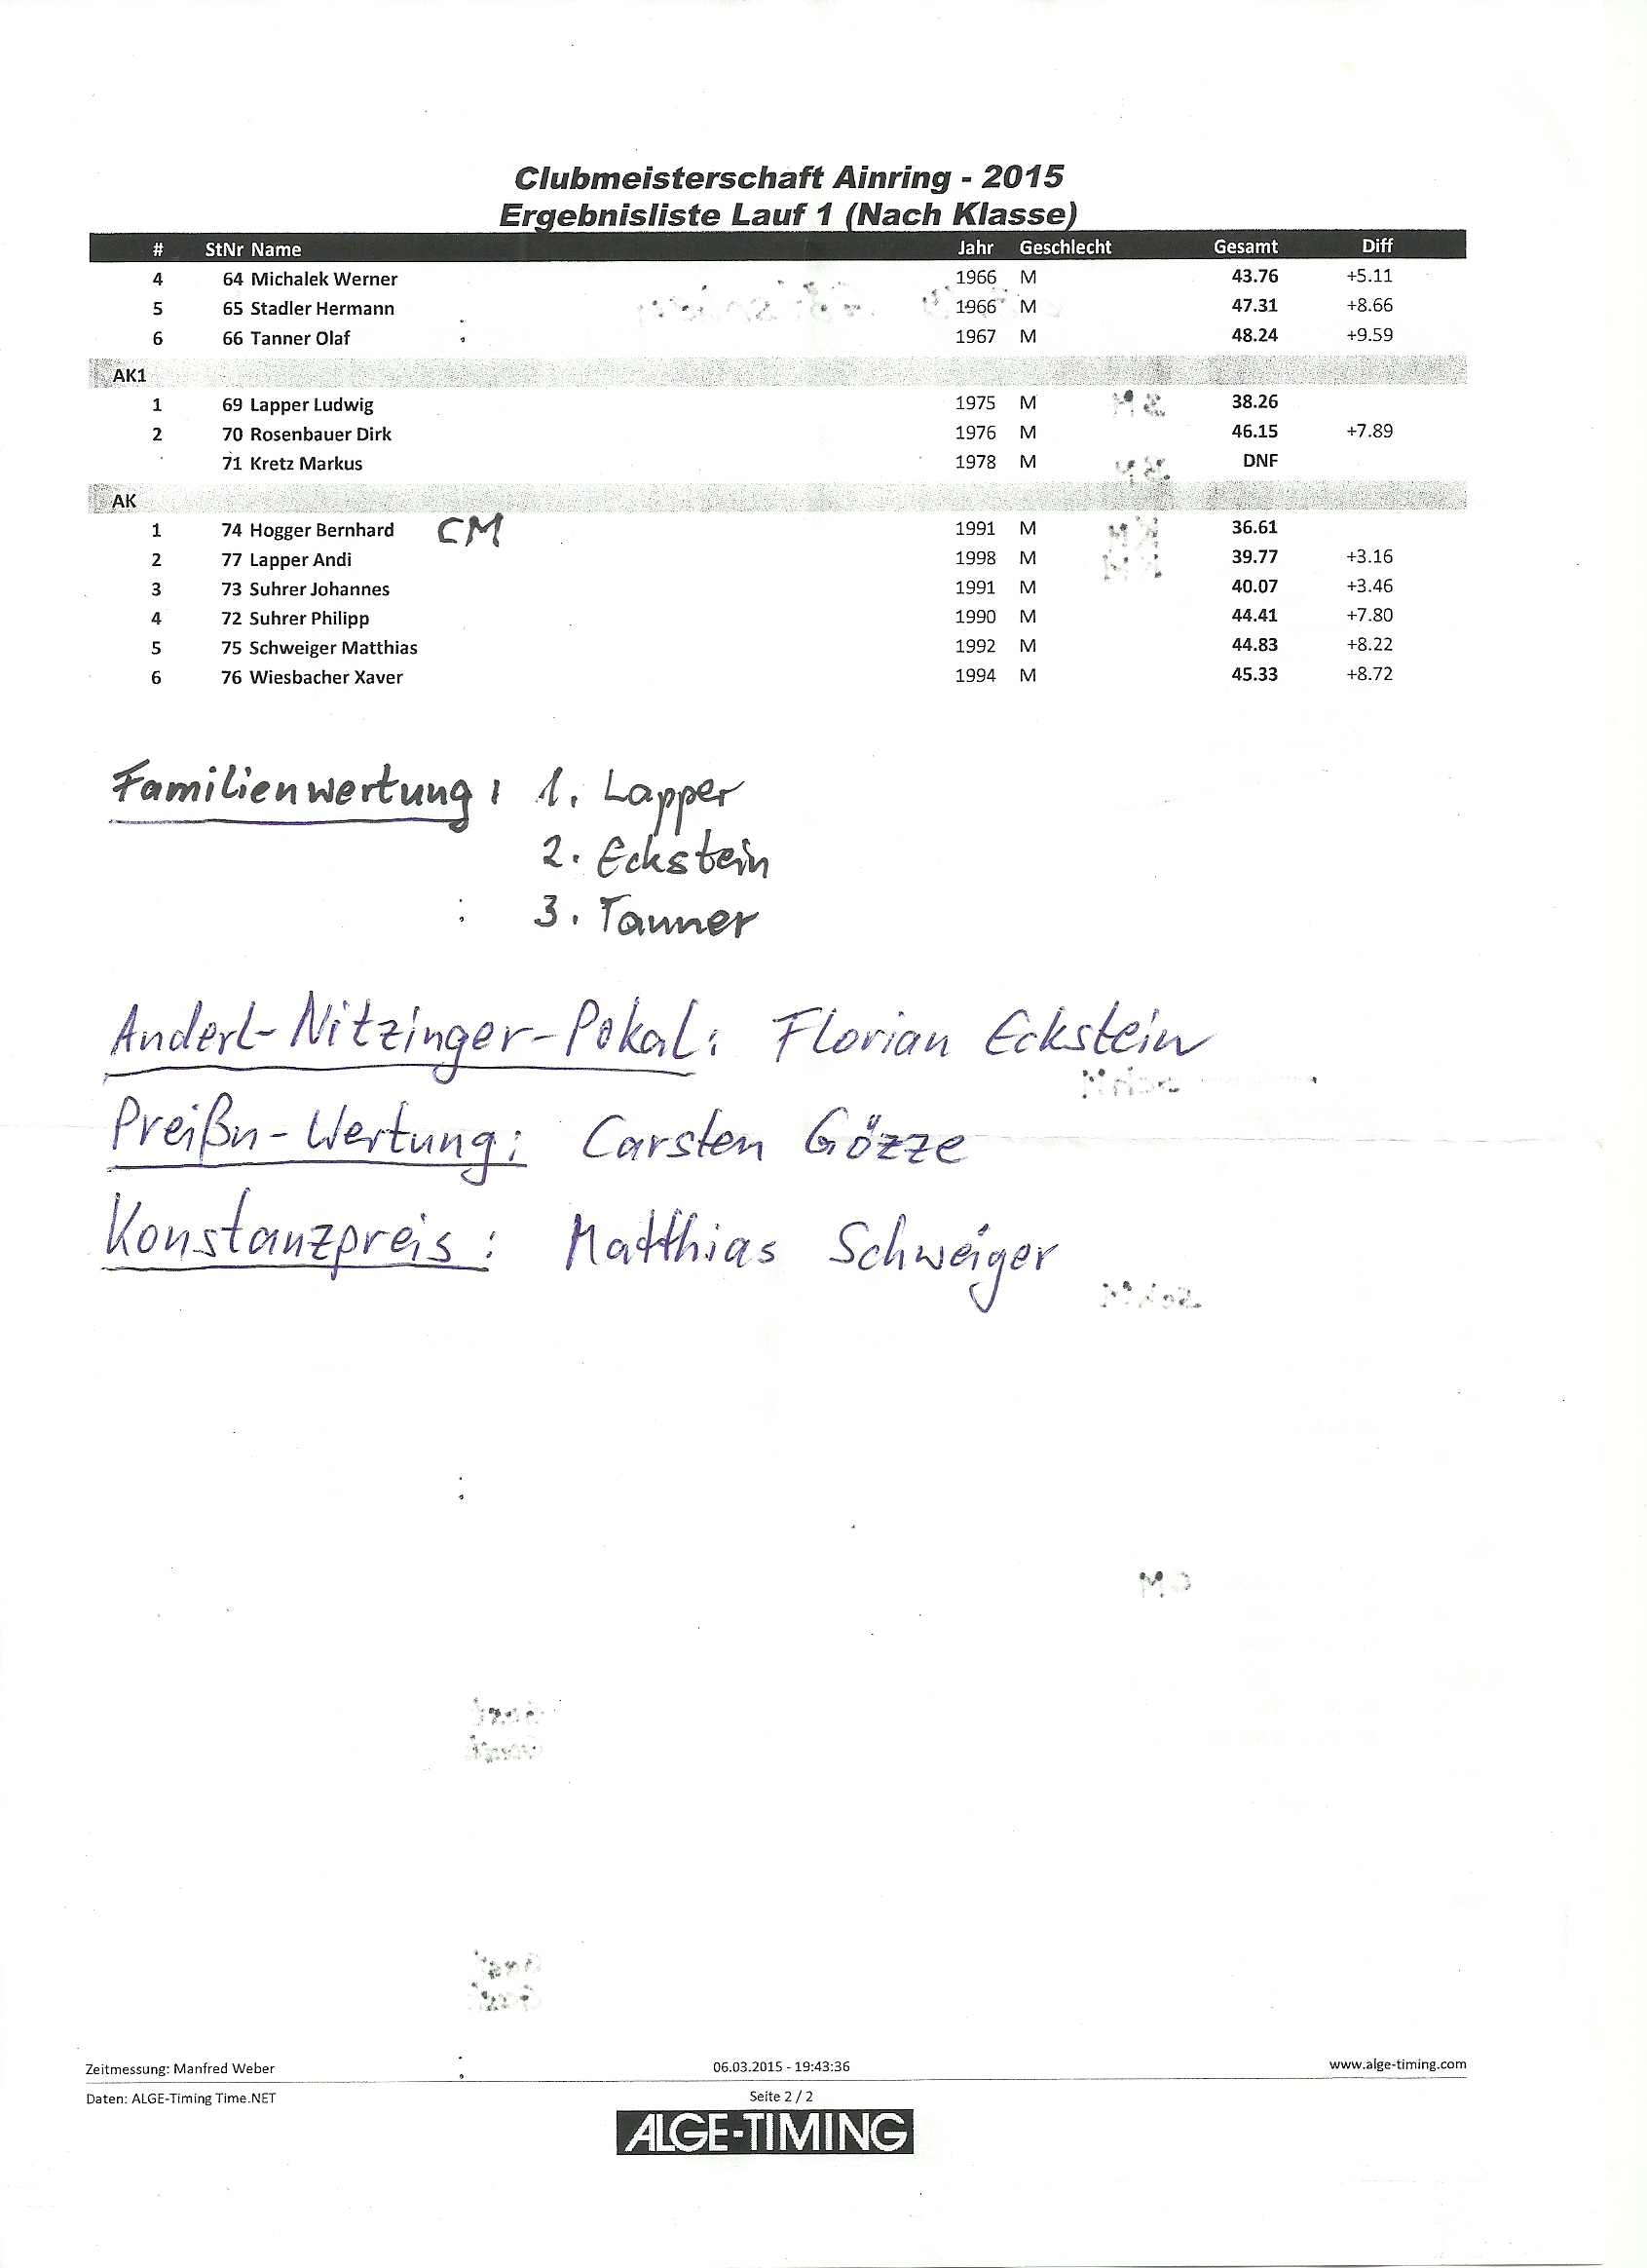 Clubmeisterschaft Ainring - 2015
Ergebnisliste Lauf 1 (Nach Klasse)
# StNr Name Jahr Geschlecht Gesamt Diff
4 64 Michalek Werner 1966 M 43.76 +5.11
5 65 Stadler Hermann 1966 M 47.31 +8.66
6 66 Tanner Olaf 1967 M 48.24 +9.59
AK1
1 69 Lapper Ludwig 1975 M 38.26
2 70 Rosenbauer Dirk 1976 M 46.15 +7.89
71 Kretz Markus 1978 M DNF
AK
1 74 Hogger Bernhard CM 1991 M 36.61
2 77 Lapper Andi 1998 M 39.77 +3.16
3 73 Suhrer Johannes 1991 M 40.07 +3.46
4 72 Suhrer Philipp 1990 M 44.41 +7.80
5 75 Schweiger Matthias 1992 M 44.83 +8.22
6 76 Wiesbacher Xaver 1994 M 45.33 +8.72
Familienwertung: 1. Lapper
2. Eckstein
3. Tanner
Anderl-Nitzinger-Pokal: Florian Eckstein
Preißn-Wertung: Carsten Gözze
Konstanzpreis: Matthias Schweiger
Zeitmessung: Manfred Weber 06.03.2015 - 19:43:36 www.alge-timing.com
Daten: ALGE-Timing Time.NET Seite 2 / 2
ALGE-TIMING